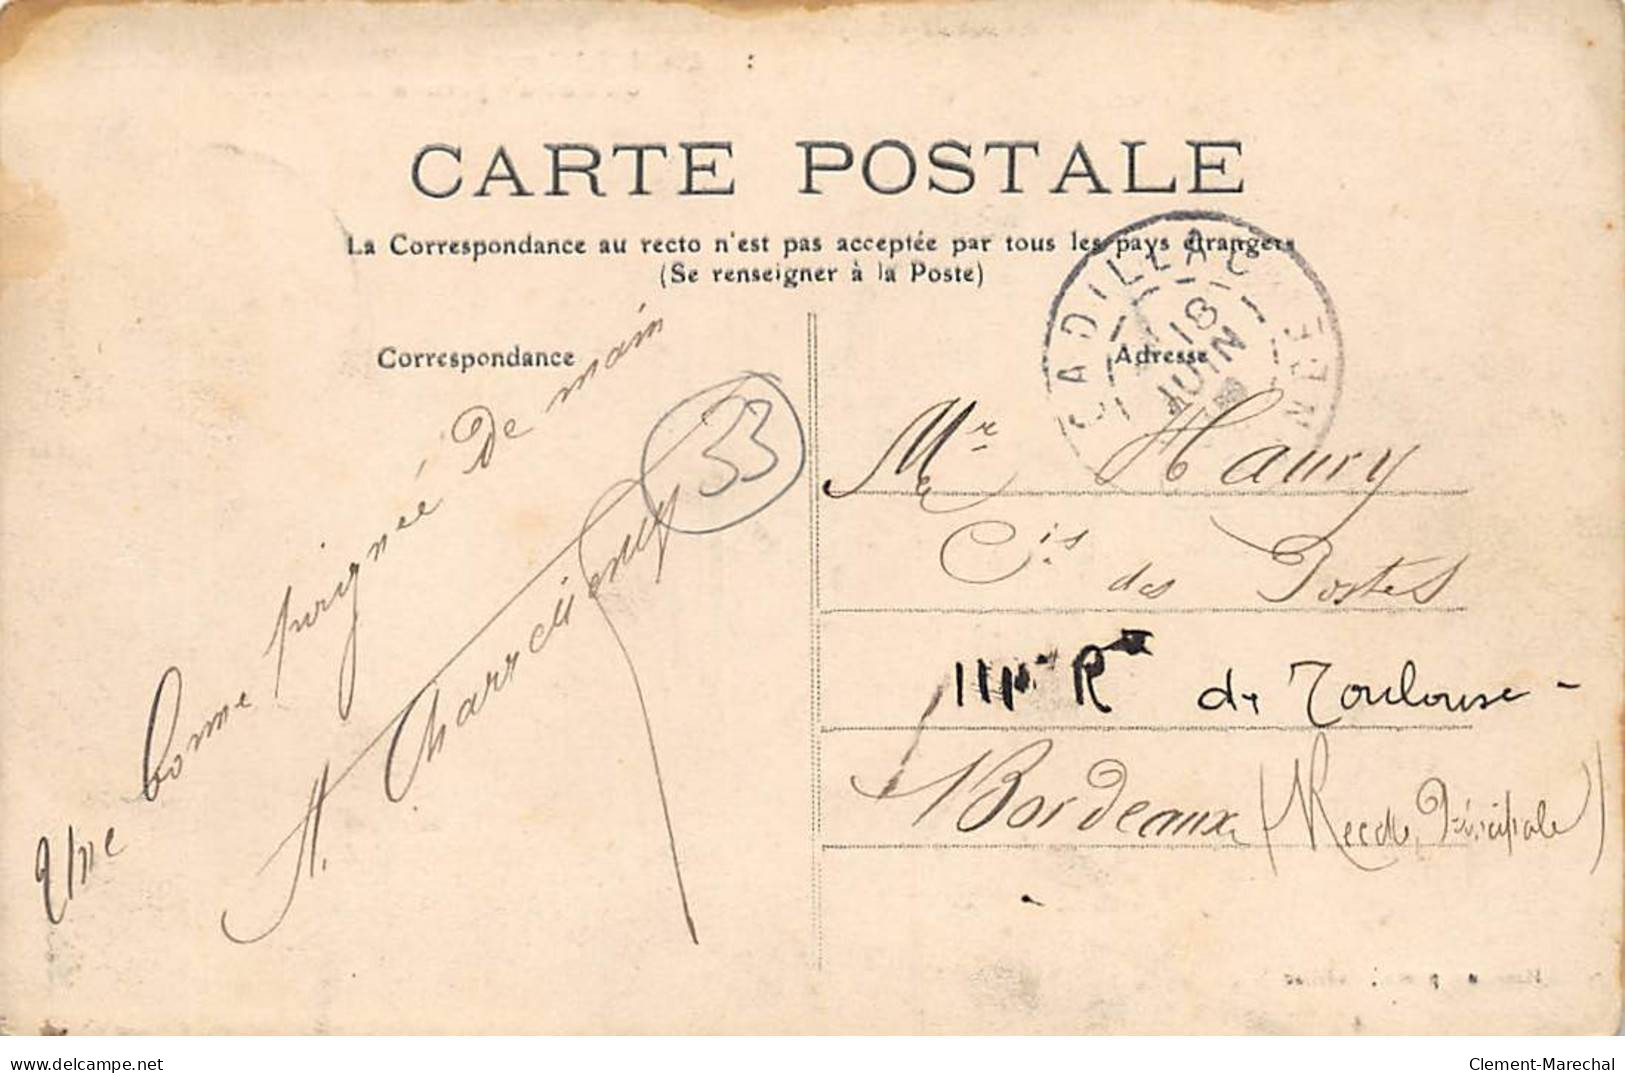 CARTE POSTALE
La Correspondance au recto n'est pas acceptée par tous les pays étrangers
(Se renseigner à la Poste)
Correspondance
Adresse
CADILLAC
18
JUIN
Une bonne poignée de main
H.
33
Mr Haury
Cis des Postes
111 Re de Toulouse -
Bordeaux (Recette Principale)
www.delcampe.net
Clement-Marechal